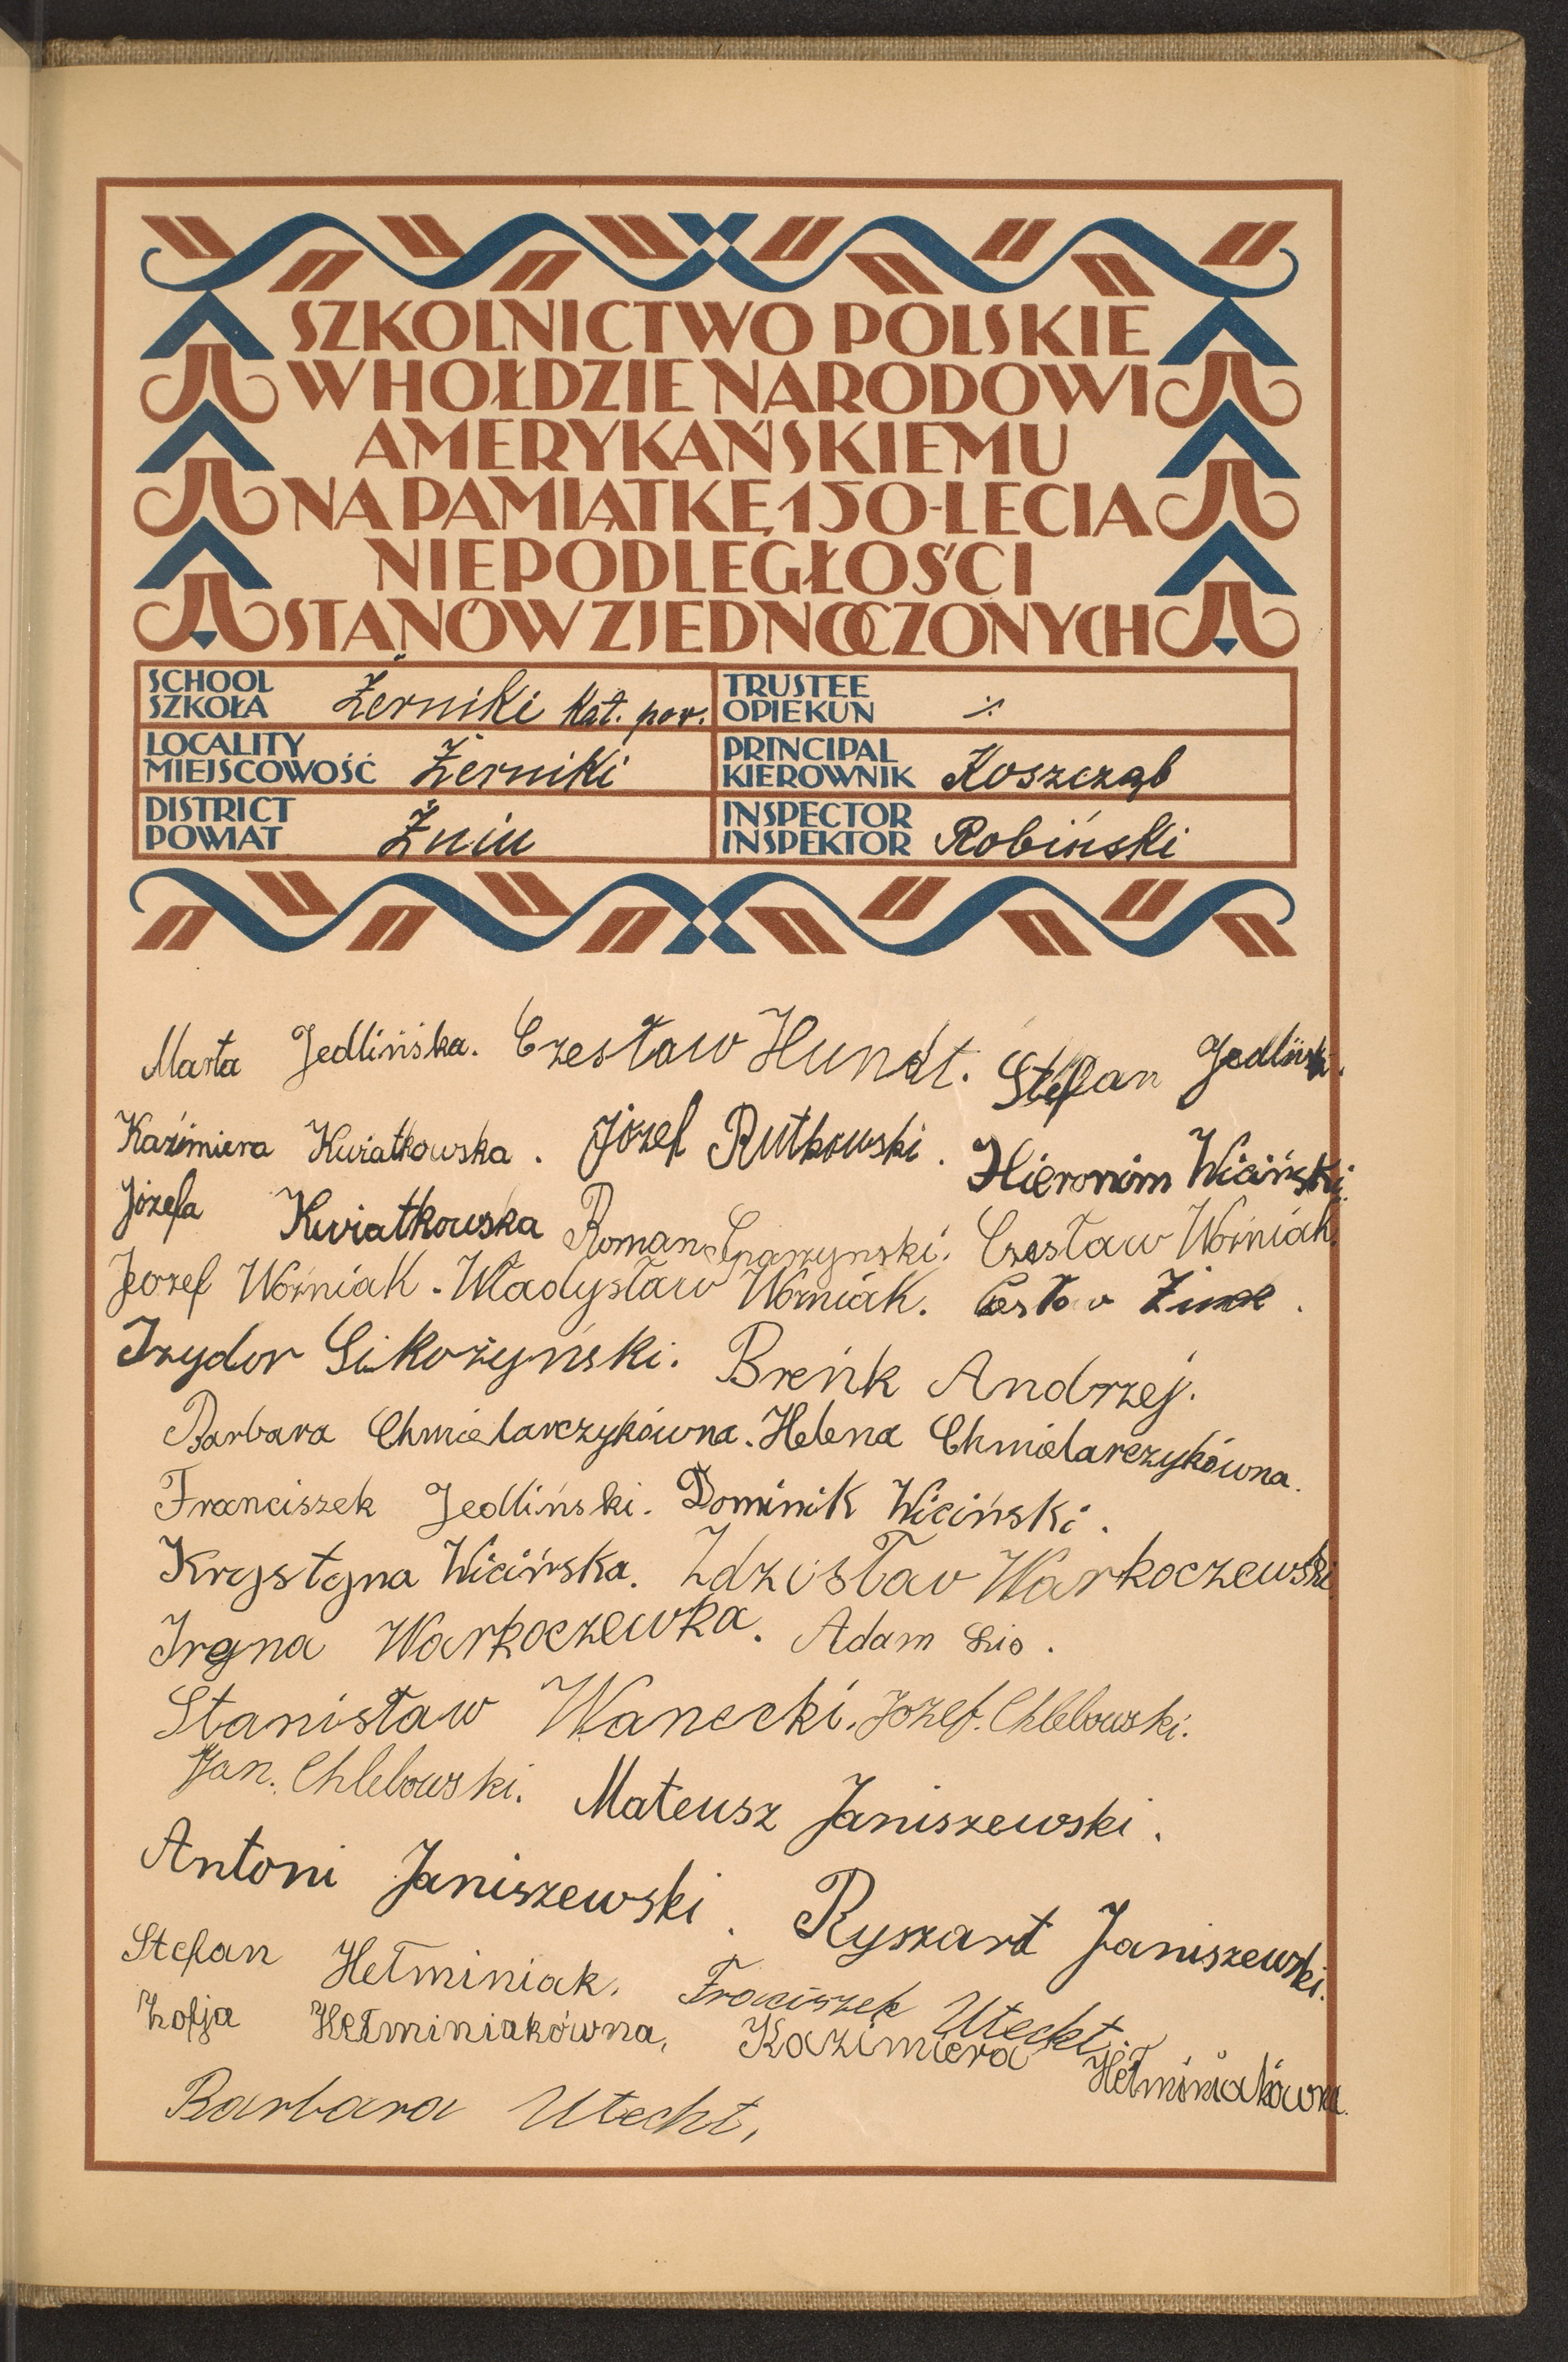 SZKOLNICTWO POLSKIE
W HOŁDZIE NARODOWI
AMERYKAŃSKIEMU
NA PAMIĄTKĘ 150-LECIA
NIEPODLEGŁOŚCI
STANÓW ZJEDNOCZONYCH
SCHOOL
SZKOŁA Żerniki kat. pow.
TRUSTEE
OPIEKUN ·/·
LOCALITY
MIEJSCOWOŚĆ Żerniki
PRINCIPAL
KIEROWNIK Koszcząb
DISTRICT
POWIAT Żnin
INSPECTOR
INSPEKTOR Robiński
Marta Jedlińska. Czesław Hundt. Stefan Jedliński.
Kaźimiera Kwiatkowska. Józef Rutkowski. Hieronim Wiciński.
Józefa Kwiatkowska Roman Czesław Woźniak.
Jozef Woźniak. Władysław Woźniak.
Izydor Sikożyński. Breńk Andrzej.
Barbara Chmielarczykówna. Helena Chmielarczykówna.
Franciszek Jedliński. Dominik Wiciński.
Krystyna Wicińska. Zdzisław Warkoczewski
Iryna Warkoczewka. Adam
Stanisław Wanecki. Jozef. Chlebowski.
Jan. Chlebowski. Mateusz Janiszewski.
Antoni Janiszewski. Ryszart Janiszewski.
Stefan Hełminiak. Franciszek Utecht,
Zofja Hełminiakówna, Kazimiera Hełminiakówna.
Barbara Utecht,